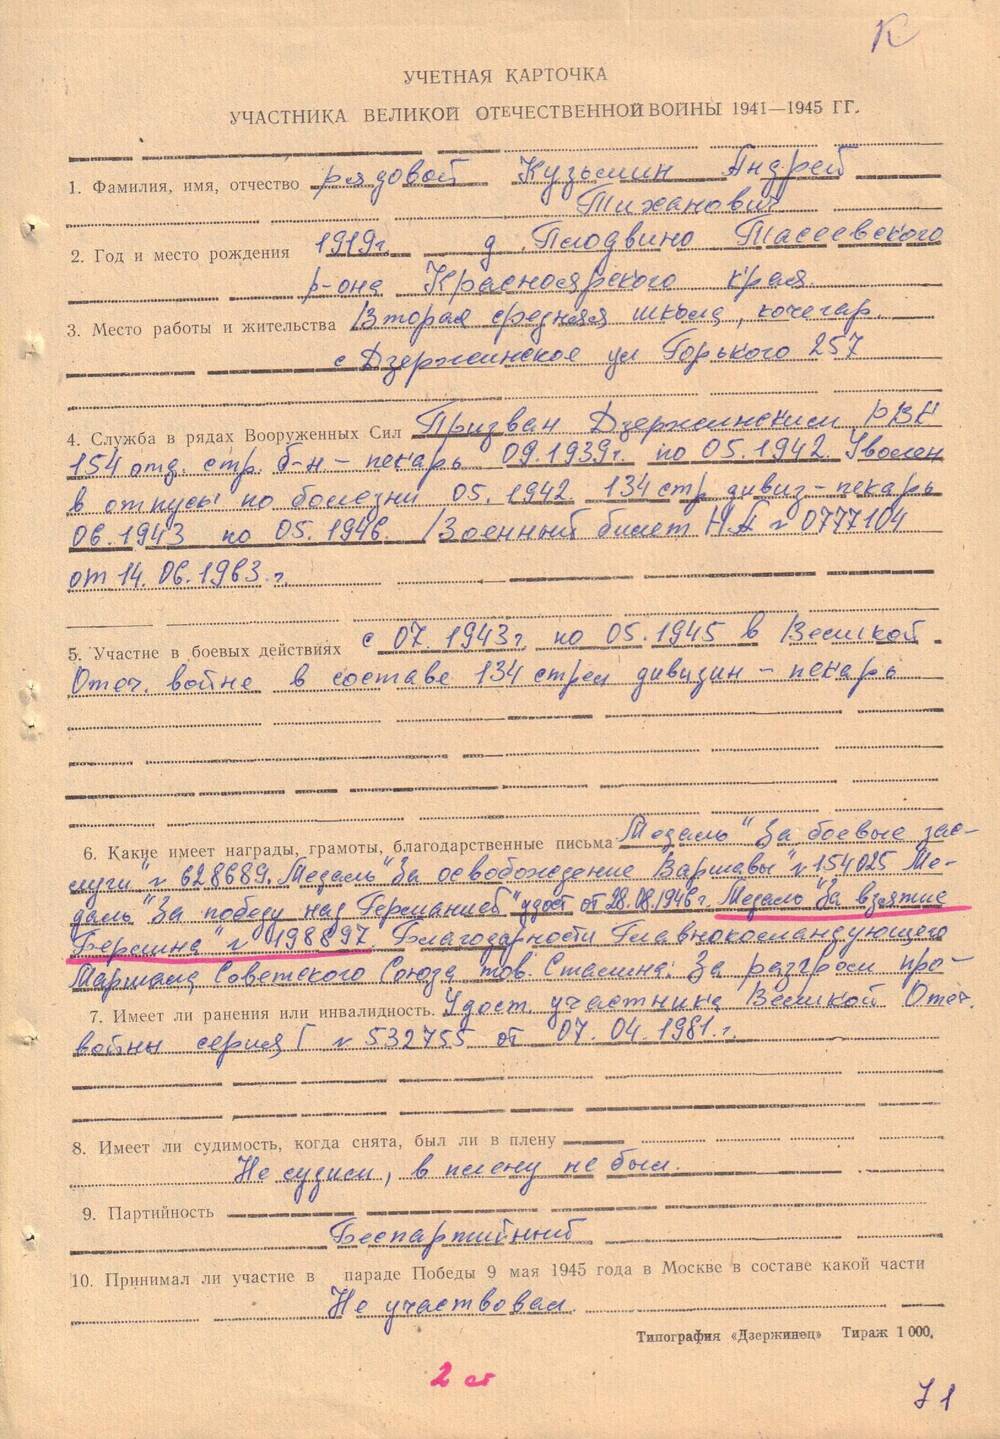 К
УЧЕТНАЯ КАРТОЧКА
УЧАСТНИКА ВЕЛИКОЙ ОТЕЧЕСТВЕННОЙ ВОЙНЫ 1941—1945 ГГ.
1. Фамилия, имя, отчество рядовой Кузьмин Андрей
Тиханович
2. Год и место рождения 1919г. д. Плодвино Тасеевского
р-она Красноярского края.
3. Место работы и жительства Вторая средняя школа, кочегар.
с Дзержинское ул Горького 257
4. Служба в рядах Вооруженных Сил Призван Дзержинским РВК
154 отд. стр. б-н – пекарь 09.1939г. по 05.1942. Уволен
в отпуск по болезни 05.1942. 134 стр дивиз – пекарь
06.1943 по 05.1946. Военный билет НА № 0777104
от 14.06.1963.г.
5. Участие в боевых действиях с 07.1943г. по 05.1945 в Великой
Отеч. войне в составе 134 стрел дивизии – пекарь
6. Какие имеет награды, грамоты, благодарственные письма Медаль "За боевые зас-
луги" № 628689. Медаль "За освобождение Варшавы" № 154025 Ме-
даль "За победу над Германией" удост от 28.08.1946г. Медаль "За взятие
Берлина" № 198897. Благодарности Главнокомандующего
Маршала Советского Союза тов. Сталина: За разгром про-
7. Имеет ли ранения или инвалидность. Удост. участника Великой Отеч.
войны серия Г № 532755 от 07.04.1981.г.
8. Имеет ли судимость, когда снята, был ли в плену
Не судим, в плену не был.
9. Партийность
Беспартийный
10. Принимал ли участие в параде Победы 9 мая 1945 года в Москве в составе какой части
Не участвовал.
Типография «Дзержинец» Тираж 1 000.
2 ст
71